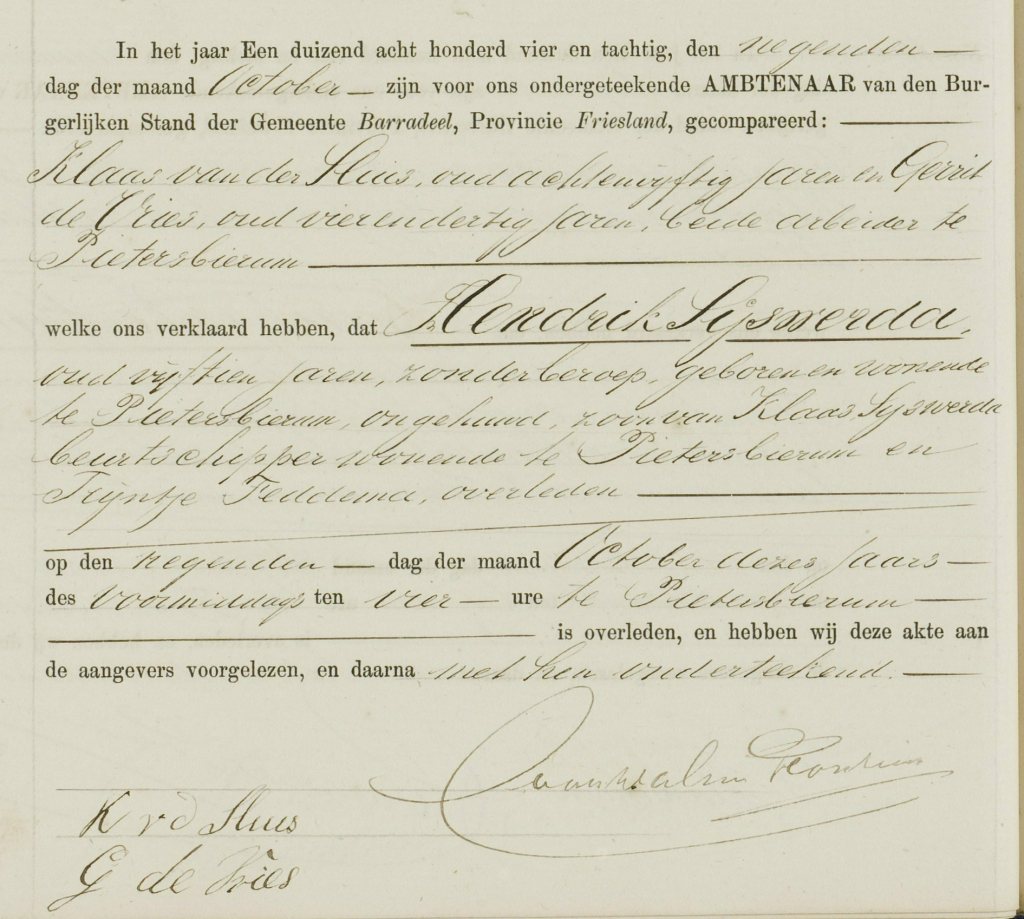 In het jaar Een duizend acht honderd vier en tachtig, den negenden —
dag der maand October — zijn voor ons ondergeteekende AMBTENAAR van den Bur-
gerlijken Stand der Gemeente Barradeel, Provincie Friesland, gecompareerd: —
Klaas van der Sluis, oud achtenvyftig jaren en Gerrit
de Vries, oud vierendertig jaren, beide arbeider te
Pietersbierum —
welke ons verklaard hebben, dat Hendrik Sijswerda,
oud vyftien jaren, zonder beroep, geboren en wonende
te Pietersbierum, ongehuwd, zoon van Klaas Sijswerda
beurtschipper wonende te Pietersbierum en
Trijntje Feddema, overleden —
op den negenden — dag der maand October dezes jaars —
des voormiddags ten vier — ure te Pietersbierum —
— is overleden, en hebben wij deze akte aan
de aangevers voorgelezen, en daarna met hen onderteekend. —
K v d Sluis
G de Vries